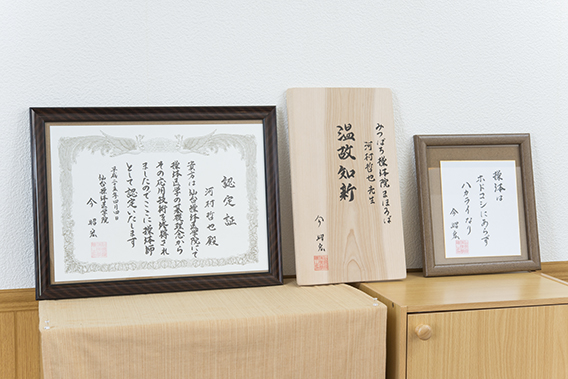 認定証
河村哲也 殿
貴方は仙台操体医学院にて
操体医学の基礎理念から
その応用技術を修得され
ましたのでここに操体師
として認定いたします
平成二五年四月四日
仙台操体医学院
今 昭宏
みつばち操体院まほろば
河村哲也先生
温故知新
今 昭宏
操体は
ホドコシにあらず
ハカライなり
今 昭宏